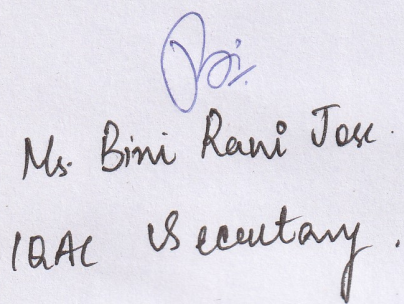 Ms. Bini Rani Jose.
IQAC Secretary.